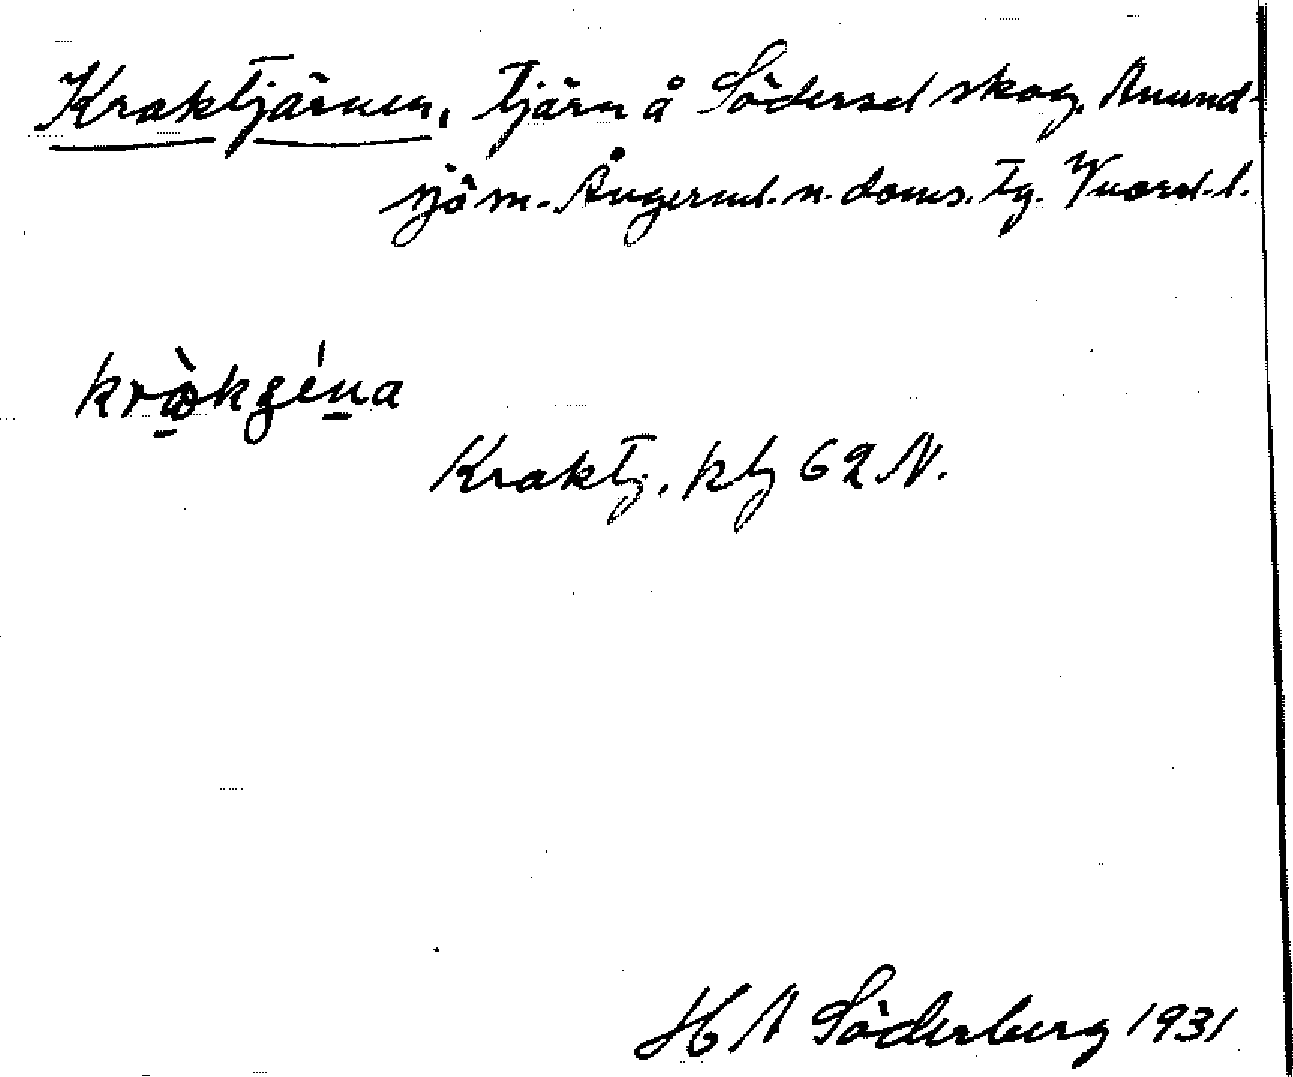 Kraktjärnen, tjärn å Södersel skog, Anund-
sjö sn. Ångerml. n. doms. tg. Vnord. l.
kràkgéna
Kraktj. ktj 62 N.
H A Söderberg 1931